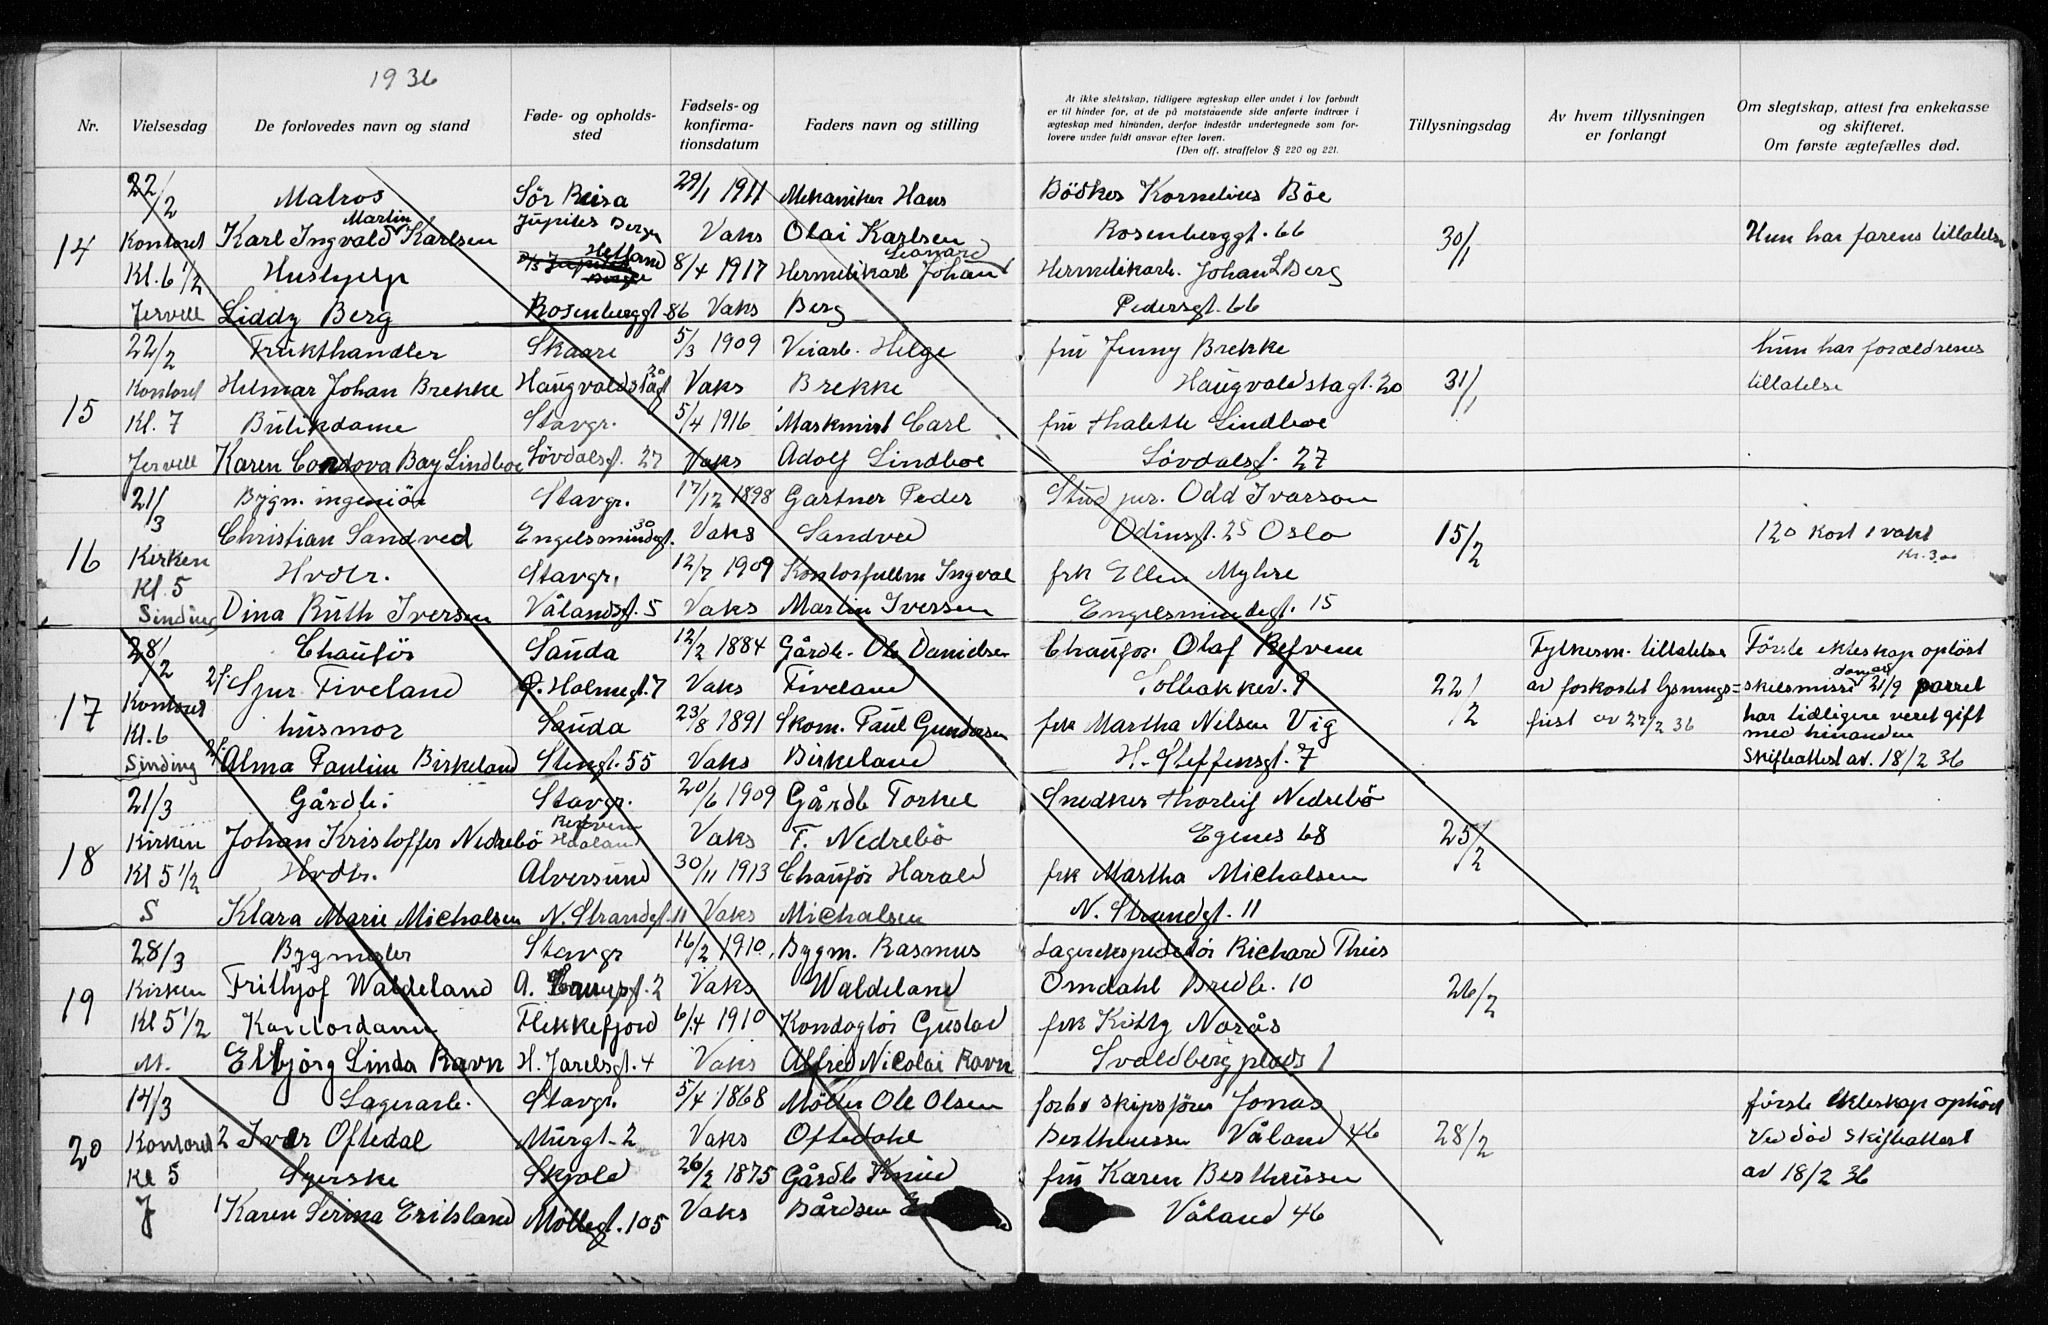 1936
Nr.
Vielsesdag
De forlovedes navn og stand
Føde- og opholds-
sted
Fødsels- og
konfirma-
tionsdatum
Faders navn og stilling
At ikke slektskap, tidligere ægteskap eller andet i lov forbudt
er til hinder for, at de på motstaaende side anførte indtrær i
ægteskap med hinanden, derfor indestår undertegnede som for-
lovere under fuldt ansvar efter loven.
(Den off. straffelov § 220 og 221.
Tillysningsdag
Av hvem tillysningen
er forlangt
Om slegtskap, attest fra enkekasse
og skifteret.
Om første ægtefælles død.
22/2 Matros Sör Reisa 29/1 1911 Mekaniker Hans Bödker Kornelius Böe
14 Kontoret Karl Ingvald Martin Karlsen Jupiter Bergen Vaks Olai Karlsen Rosenberggt. 66 30/1 Hun har farens tillatelse
Kl. 6 1/2 Hushjelp Hetland 8/4 1917 Hermetikarb Johan Leonard Hermetikarb. Johan L Berg
Jervell Liddy Berg Rosenberggt. 86 Vaks Berg Pedersgt. 66
22/2 Frukthandler Skaare 5/3 1909 Veiarb. Helge fru Jenny Brekke Hun har forældrenes
15 Kontoret Helmar Johan Brekke Haugvaldstagt 20 Vaks Brekke Haugvaldstagt. 20 31/1 tillatelse
Kl. 7 Butikdame Stavgr. 5/4 1916 Maskinist Carl fru Thalette Lindboe
Jervell Karen Cordova Bay Lindboe Lövdalsgt. 27 Vaks Adolf Lindboe Lövdalsgt. 27
21/3 Bygn. ingeniör Stavgr. 17/12 1898 Gartner Peder Stud jur. Odd Ivarson
16 Kirken Christian Sandved Engelsmindegt. 30 Vaks Sandved Odinsgt. 25 Oslo 15/2 120 kort 1 vakt
Kr. 3,00
Kl. 5 Hvdtr. Stavgr. 12/7 1909 Kontorfullm Ingval frk Ellen Myhre
Sinding Dina Ruth Iversen Vålandsgt. 5 Vaks Martin Iversen Engelsmindegt. 15
28/2 Chauför Sauda 12/2 1884 Gårdbr. Ole Danielsen Chauför. Olaf Refvem Fylkesm. tillatelse Første ekteskap opløst
17 Kontoret 2f. Sjur Fiveland H. Holmegt. 7 Vaks Fiveland Solbakkev. 9 22/2 av forkortet lysnings= skilsmisse dom av 21/9 parret
Kl. 6 husmor Sauda 23/8 1891 Skom. Paul Gundersen frk Martha Nilsen Vig frist av 27/2 36 har tidligere veret gift
med hinanden
Sinding 2f. Alma Pauline Birkeland Stengt. 55 Vaks Birkeland H. Steffensgt. 7 Skifteattest av. 18/2 36
21/3 Gårdbr. Stavgr. 20/6 1909 Gårdb Torkel Snedker Thorleif Nedrebö
18 Kirken Johan Kristoffer Nedrebö Refven Haaland Vaks F. Nedrebö Egenes 68 25/2
Kl 5 1/2 Hvdtr. Alversund 30/11 1913 Chauför Harald frk Martha Michalsen
S Klara Marie Michalsen N. Strandgt. 11 Vaks Michalsen N. Strandgt. 11
28/3 Bygmester Stavgr 16/2 1910. Bygm. Rasmus Lagerekspeditör Richard Thies
19 Kirken Frithjof Waldeland A. 2 Vaks Waldeland Omdahl Bredb. 10 26/2
Kl 5 1/2 Kontordame Flekkefjord 6/4 1910 Kondoktör Gustav frk Kitty Norås
M. Elbjörg Linda Ravn H. Jarlsgt. 4 Vaks Alfred Nicolai Ravn Svaldberg plads 1
14/3 Lagerarb. Stavgr. 5/4 1868 Möller Ole Olsen forhv skipsförer Jonas første ekteskap ophört
20 Kontoret 2 Ivar Oftedal Murgt. 2 Vaks Oftedahl Bertheussen Våland 46 28/2 Ved död skifteattest
Kl 5 Syerske Skjold 26/2 1875 Gårdb Knud fru Karen Bertheussen av 18/2 36
J 1 Karen Serina Erilsland Möllegt. 105 Vaks Bårdsen Våland 46